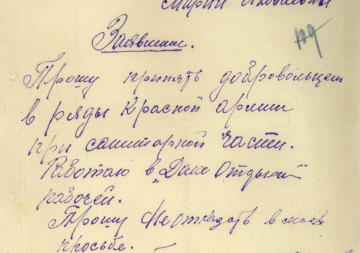 Марии Яковлевны
Заявление.
Прошу принять добровольцем
в ряды Красной армии
при санитарной части.
Работаю в „Доме Отдыха"
рабочей.
Прошу Не отказать в моей
просьбе.